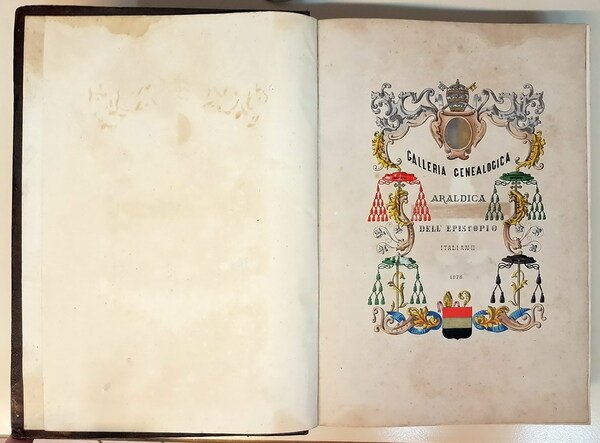 GALLERIA GENEALOGICA
ARALDICA
DELL' EPISCOPIO
ITALIANO
1878